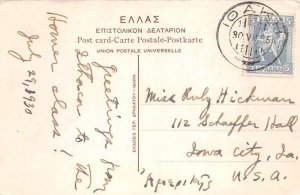 ΕΛΛΑΣ
ΕΠΙΣΤΟΛΙΚΟΝ ΔΕΛΤΑΡΙΟΝ
Post card-Carte Postale-Postkarte
UNION POSTALE UNIVERSELLE
Greetings from
Ithaca to the
Homer class!
July 29, 1930
Miss Ruby Hickman
112 Schaeffer Hall
Iowa City, Ia.
U.S.A.
"Αμερικής
ΙΘΑΚΗ